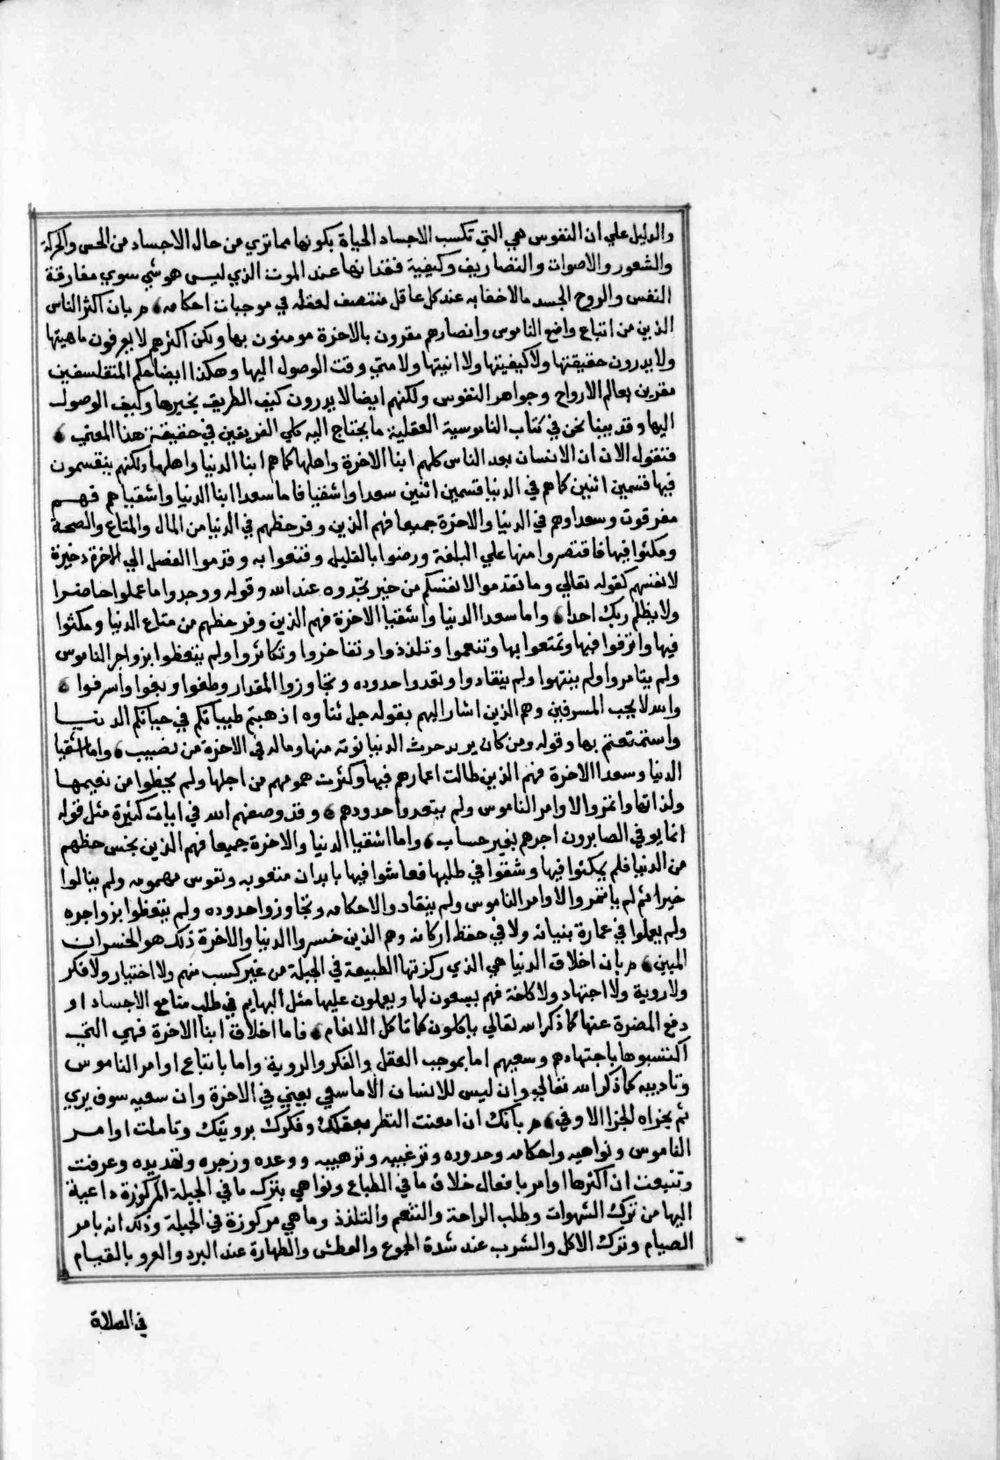 والدليل علي ان النفوس هي التي تكسب الاجساد الحياة بكونها مما تري من حال الاجساد من الحس والحركة
والشعور والاصوات والتصاريف وكيفية فقدانها عند الموت الذي ليس هو شي سوي مفارقة
النفس والروح الجسد مالا خفا به عند كل عاقل منتصف لعقله في موجبات احكامه م بان اكثر الناس
الذين من اتباع واضع الناموس وانصارهم مقرون بالاخرة مومنون بها ولكن اكثرهم لا يعرفون ماهيتها
ولا يدرون حقيقتها ولا كيفيتها ولا انيتها ولا متي وقت الوصول اليها وهكذا ايضا حكم المتفلسفين
مقرين بعالم الارواح وجواهر النفوس ولكنهم ايضا لا يدرون كيف الطريق وكيف الوصول
اليها وقد بينا نحن في كتاب الناموسية العقلية ما يحتاج اليه كلي الفريقين في حقيقة هذا المعني
فنقول الان ان الانسان بعد الناس كلهم ابنا الاخرة واهلها كما هم ابنا الدنيا واهلها ولكنهم ينقسمون
فيها قسمين اثنين كما هم في الدنيا قسمين اثنين سعدا واشقيا فاما سعدا ابنا الدنيا واشقياهم فهم
معرفون وسعداوهم في الدنيا والاخرة جميعا فهم الذين وفر حظهم في الدنيا من المال والمتاع والصحة
ومكنوا فيها فاقتصروا منها علي البلغة ورضوا بالقليل وقنعوا به وقدموا الفضل الي الاخرة ذخيرة
لانفسهم كقوله تعالي وما تقدموا لانفسكم من خير تجدوه عند الله وقوله ووجدوا ما عملوا حاضرا
ولا يظلم ربك احدا واما سعدا الدنيا واشقيا الاخرة فهم الذين وفر حظهم من متاع الدنيا ومكنوا
فيها واترفوا فيها وتمتعوا بها وتنعموا وتلذذوا وتفاخروا وتكاثروا ولم يتعظوا بزواجر الناموس
ولم يتامروا ولم ينتهوا ولم ينقادوا وتعدوا حدوده وتجاوزوا المقدار وطغوا وبغوا واسرفوا
والله لا يحب المسرفين وهم الذين اشار اليهم بقوله جل ثناوه اذهبتم طيباتكم في حياتكم الدنيا
واستمتعتم بها وقوله ومن كان يريد حرث الدنيا نوته منها وماله في الاخرة من نصيب واما اشقيا
الدنيا وسعدا الاخرة فهم الذين طالت اعمارهم فيها وكثرت همومهم من اجلها ولم يحظوا من نعيمها
ولذاتها وائتمروا لاوامر الناموس ولم يتعدوا حدودهم وقد وصفهم الله في ايات كثيرة مثل قوله
انما يوفي الصابرون اجرهم بغير حساب واما اشقيا الدنيا والاخرة جميعا فهم الذين بخس حظهم
من الدنيا فلم يمكنوا فيها وشقوا في طلبها فعاشوا فيها بابدان متعوبه ونفوس مهمومه ولم ينالوا
خيرا ثم لم ياتمروا لاوامر الناموس ولم ينقاد والاحكامه وتجاوزوا حدوده ولم يتعظوا بزواجره
ولم يعملوا في عمارة بنيانه ولا في حفظ اركانه وهم الذين خسروا الدنيا والاخرة ذلك هو الخسران
المبين م بان اخلاق الدنيا هي الذي ركزتها الطبيعة في الجبلة من غير كسب منهم ولا اختيار ولا فكر
ولا روية ولا اجتهاد ولا كلفة فهم يسعون لها ويعملون عليها مثل البهايم في طلب منافع الاجساد او
دفع المضرة عنها كما ذكر الله تعالي ياكلون كما تاكل الانعام فاما اخلاق ابنا الاخرة فهي التي
اكتسبوها باجتهادهم وسعيهم اما بموجب العقل والفكر والروية واما باتباع اوامر الناموس
وتاديبه كما ذكر الله تعالي وان ليس للانسان الا ما سعي يعني في الاخرة وان سعيه سوف يري
ثم يجزاه الجزا الاوفي م بانك ان امعنت النظر بعقلك وفكرك برويتك وتاملت اوامر
الناموس ونواهيه واحكامه وحدوده وترغيبه وترهيبه ووعده وزجره وتهديده وعرفت
وتتبعت ان اكثرها اوامر بافعال خلاف ما في الطباع ونواهي بترك ما في الجبلة المركوزة داعية
اليها من ترك الشهوات وطلب الراحة والتنعم والتلذذ وما هي مركوزة في الجبلة وذلك انه يامر
الصيام وترك الاكل والشرب عند شدة الجوع والعطش والطهارة عند البرد والعرو بالقيام
في الصلاة